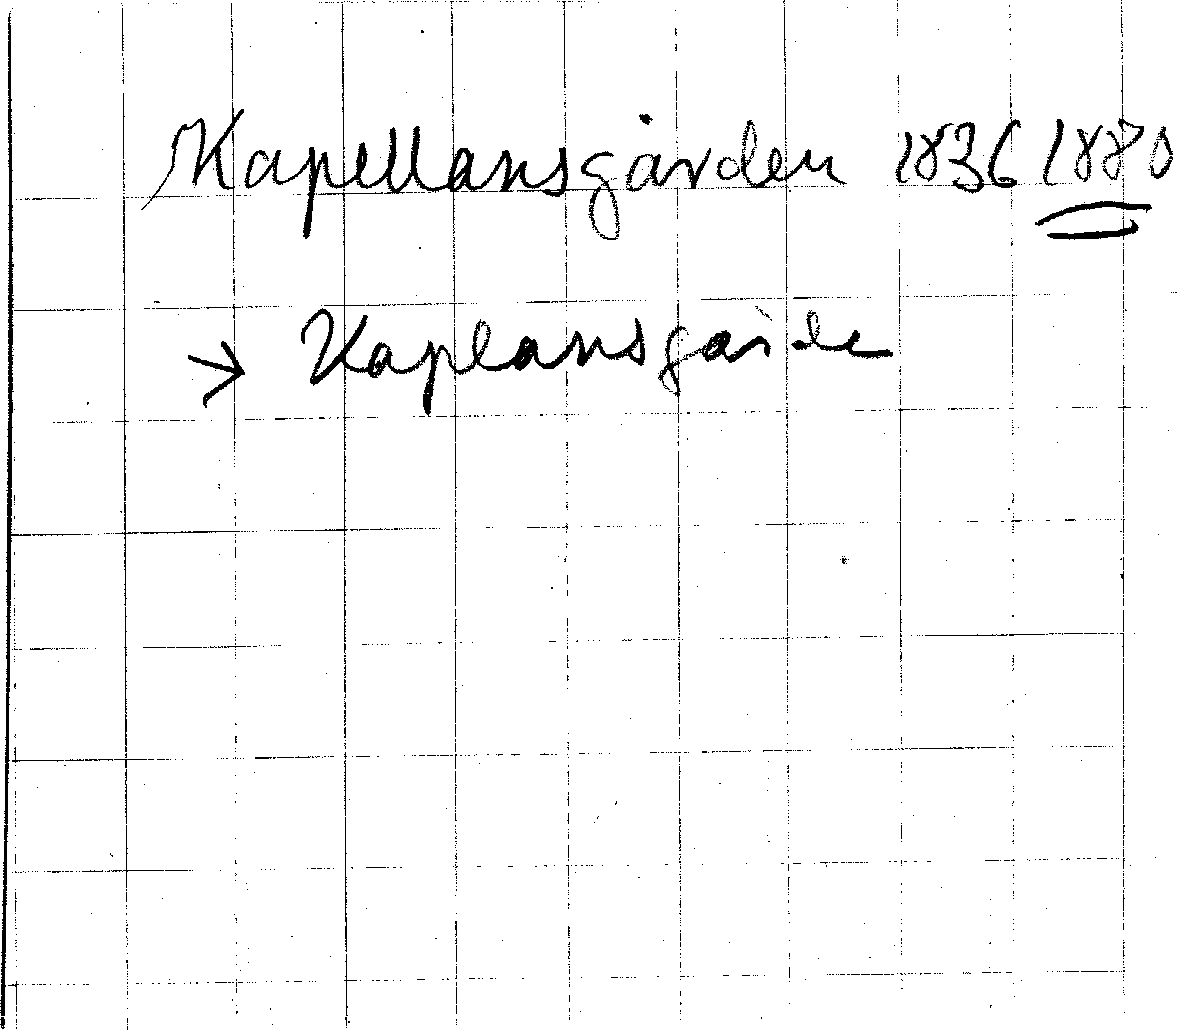 Kapellansgården 1836 1880
→ Kaplansgårde